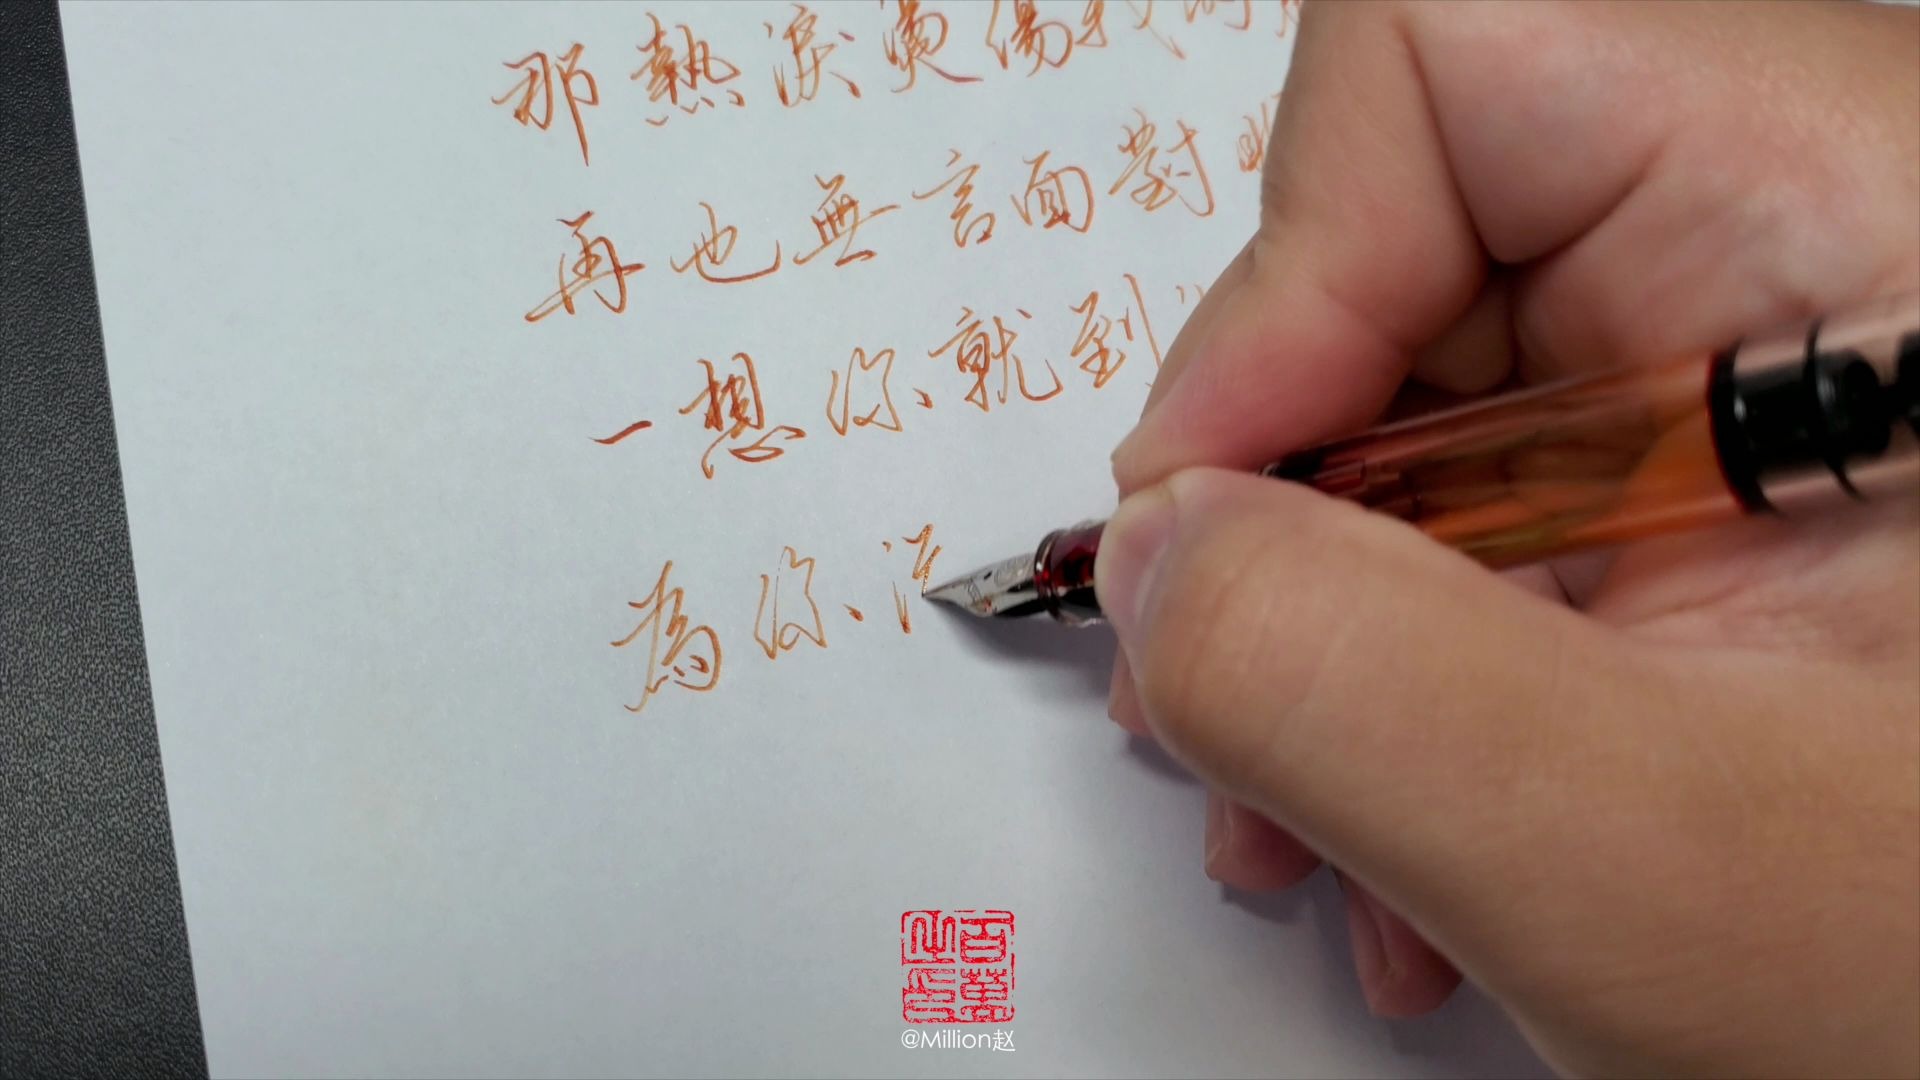 那熱淚燙傷我的
再也無言面對
一想你就到
為你
百萬之印
@Million赵